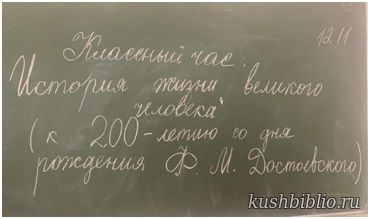 12.11
Классный час:
История жизни великого
человека"
(к 200-летию со дня
рождения Ф. М. Достоевского)
kushbiblio.ru